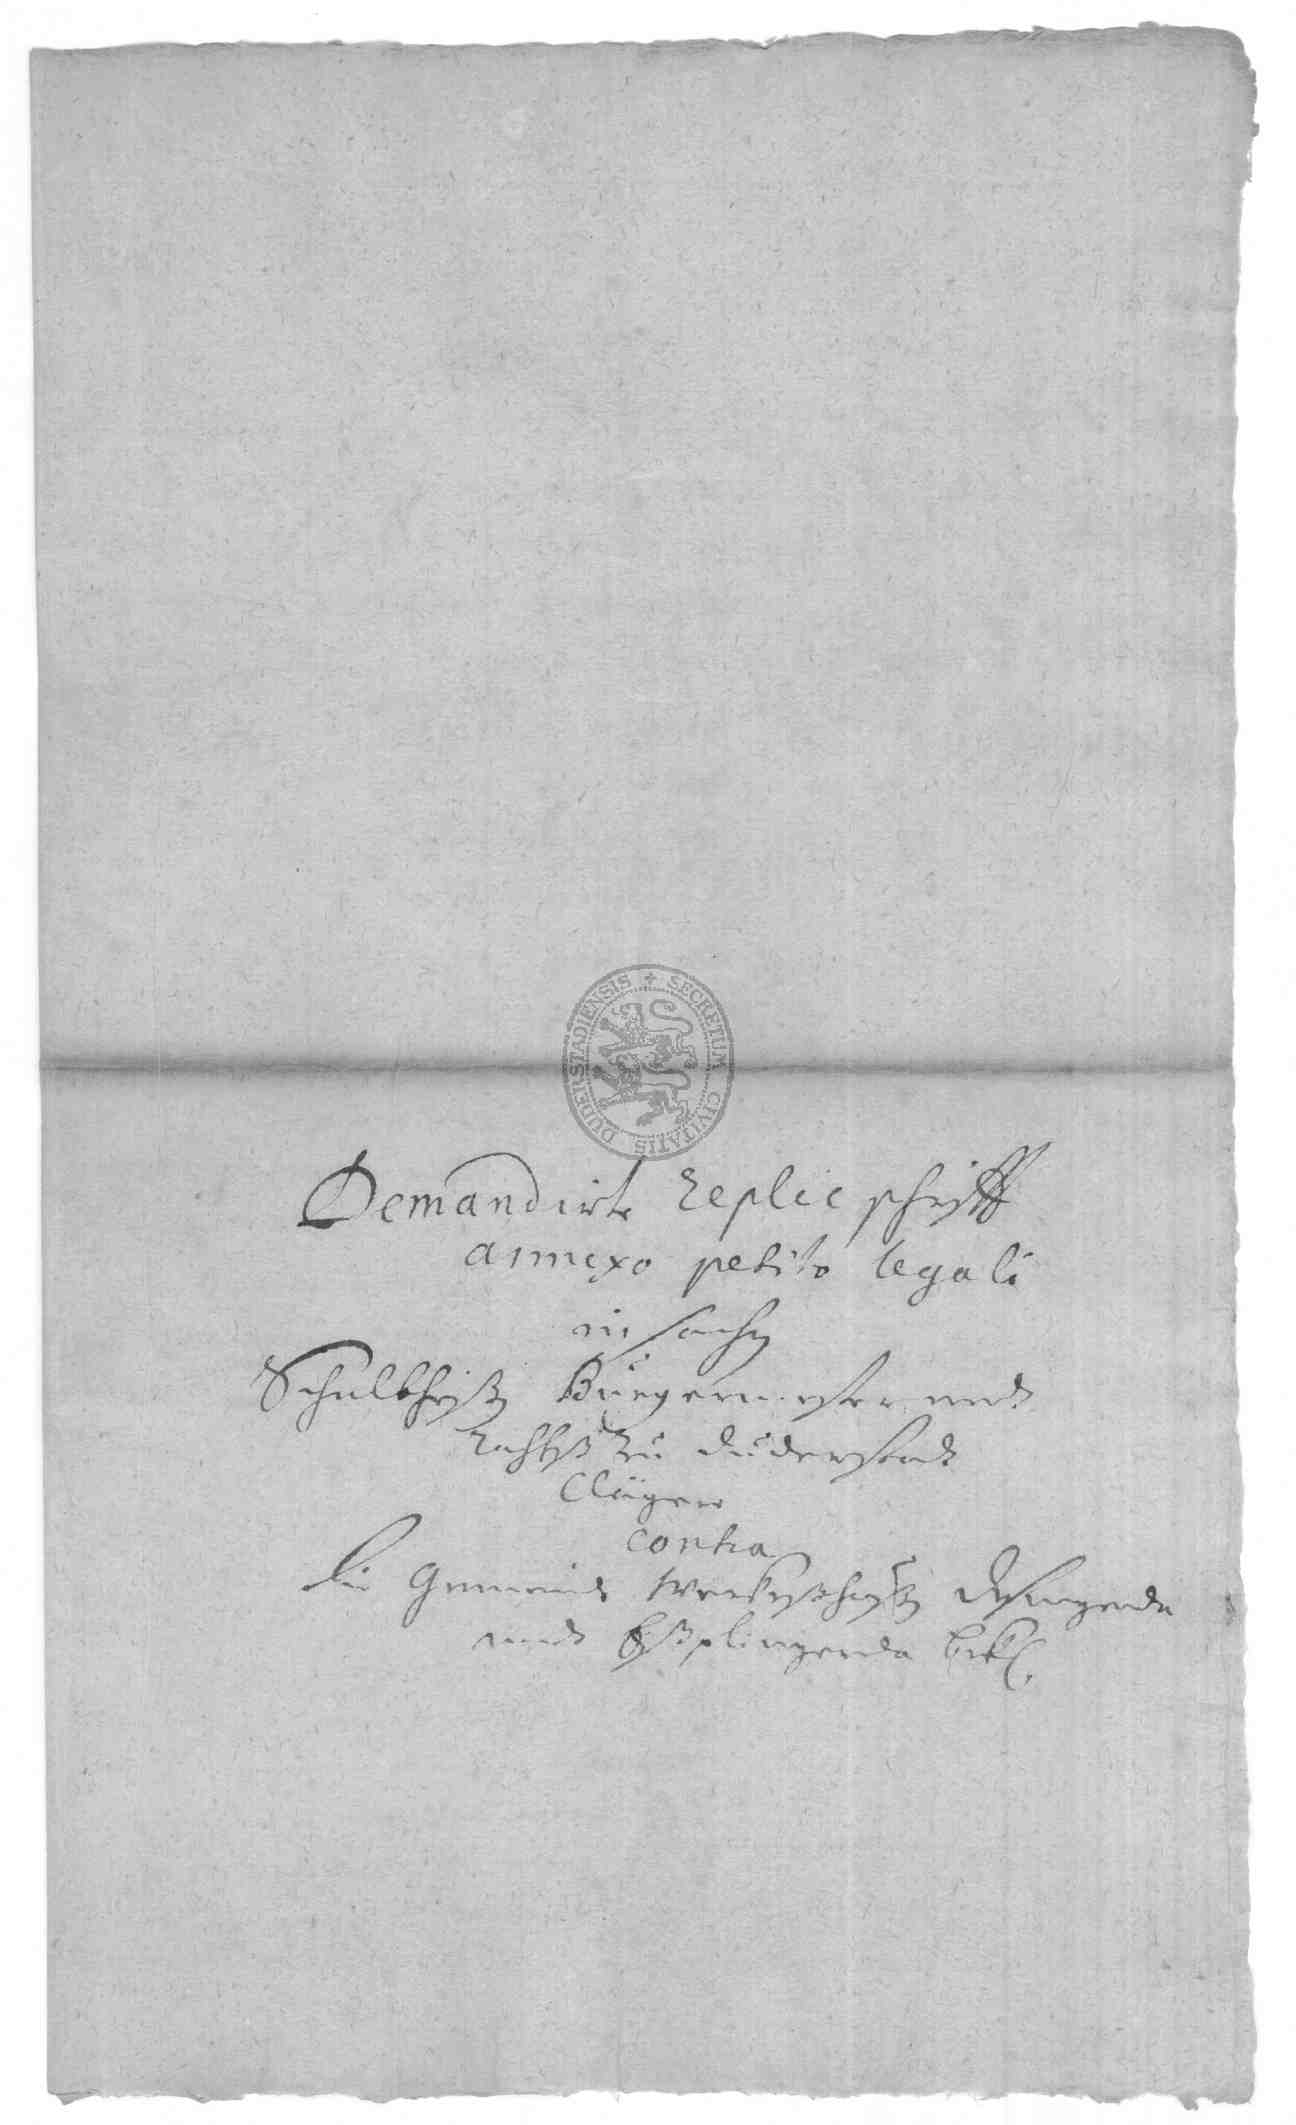 SECRETUM CIVITATIS DUDERSTADIENSIS
Demandirte Replic schrifft
annexo petito legali
in sachen
Schultheiß Bürgermeister und
Rahtß Zu Duderstadt
Clägere
contra
Die Gemeinde Werkeßhaußen
und beklr.